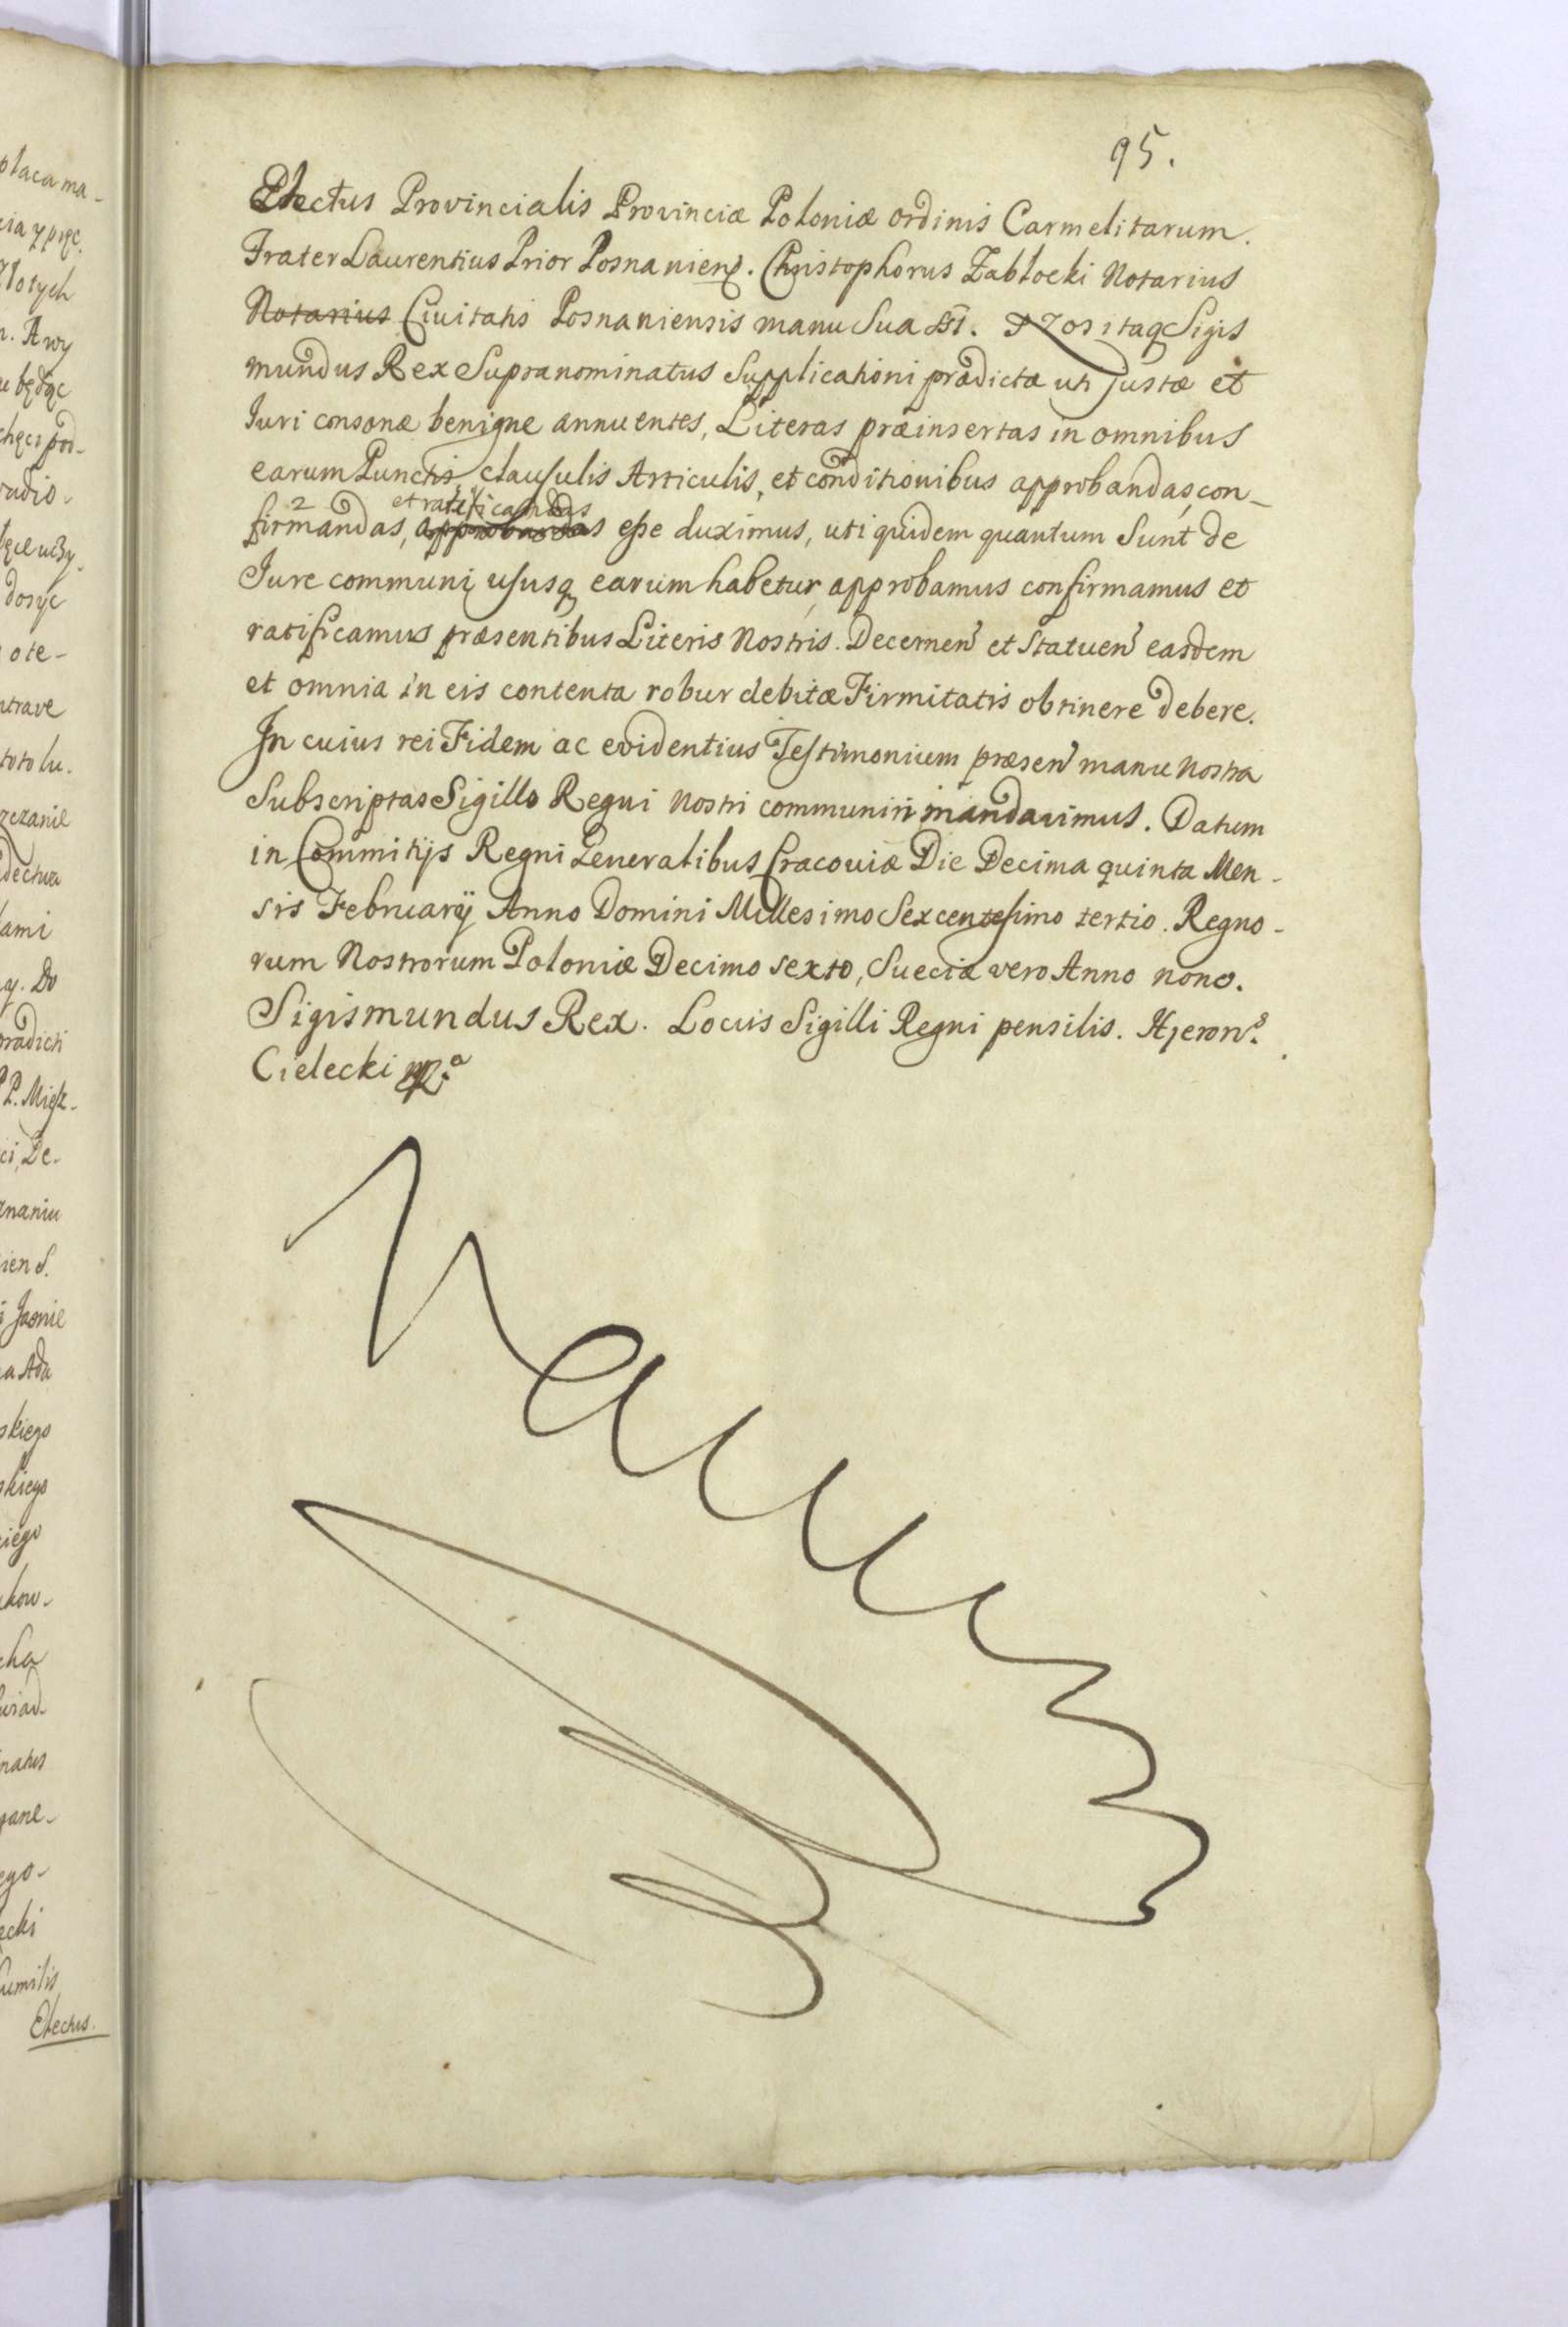 placa ma-
95.
Electus Provincialis Provinciæ Poloniæ ordinis Carmelitarum.
Frater Laurentius Prior Posnanien. Christophorus Zabłocki Notarius
Notarius Civitatis Posnaniensis manu Sua sst. Nos itaq Sigis
mundus Rex Supranominatus Supplicationi prædictæ uti Justæ et
Iuri consonæ benigne annuentes, Literas præinsertas in omnibus
earum Punctis, clausulis Articulis, et conditionibus approbandas, con-
et ratificandas
firmandas, approbandas esse duximus, uti quidem quantum Sunt de
Jure communi, ususq earum habetur, approbamus confirmamus et
ratificamus præsentibus Literis Nostris. Decernen et Statuen easdem
et omnia in eis contenta robur debitæ Firmitatis obtinere debere.
In cuius rei Fidem ac evidentius Testimonium præsen manu nostra
Subscriptas Sigillo Regni Nostri communiri mandavimus. Datum
in Commitijs Regni Generalibus Cracoviæ Die Decima quinta Men-
sis February Anno Domini Millesimo Sexcentesimo tertio. Regno-
rum Nostrorum Poloniæ Decimo sexto, Sueciæ vero Anno nono.
Sigismundus Rex. Locus Sigilli Regni pensilis. Hieron.s
Cielecki mp.a
Złotych
. A wy
będąc
chęci pod-
radio-
dosyć
ote-
ntrave
toto lu-
zezanie
ami
y. Do
prædicti
PP. Miesz-
ci, De-
znaniu
ien s.
a Ada
skiego
skiego
kiego
kow-
cha
natus
ego-
ecki
Humilis
Electus.